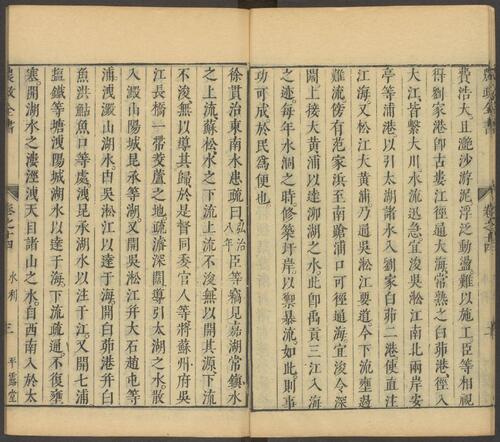 費浩大且灔沙游泥浮泛動盪難以施工臣等相視
得劉家港卽古婁江徑通大海常熟之白茆港徑入
大江皆繫大川水流迅急宜浚吳淞江南北兩岸安
亭等浦港以引太湖諸水入劉家白茆二港使直注
江海又松江大黃浦乃通吳淞江要道今下流壅遏
難流傍有范家浜至南蹌浦口可徑通海宜浚令深
闊上接大黃浦以達泖湖之水此卽禹貢三江入海
之迹每年水涸之時修築圩岸以禦暴流如此則事
功可成於民爲便也
徐貫治東南水患疏曰弘治八年臣等竊見嘉湖常鎮水
之上流蘇松水之下流上流不浚無以開其源下流
不浚無以導其歸於是督同委官人等將蘇州府吳
江長橋一帶茭蘆之地疏濬深闊導引太湖之水散
入澱山陽城昆承等湖又開吳淞江并大石趙屯等
浦洩澱山湖水由吳淞江以達于海開白茆港并白
魚洪鮎魚口等處洩昆承湖水以注于江又開七浦
鹽鐵等塘洩陽城湖水以達于海下流疏通不復壅
塞開湖水之漊涇洩天目諸山之水自西南入於太
農政全書 卷之十四 水利 三 平露堂